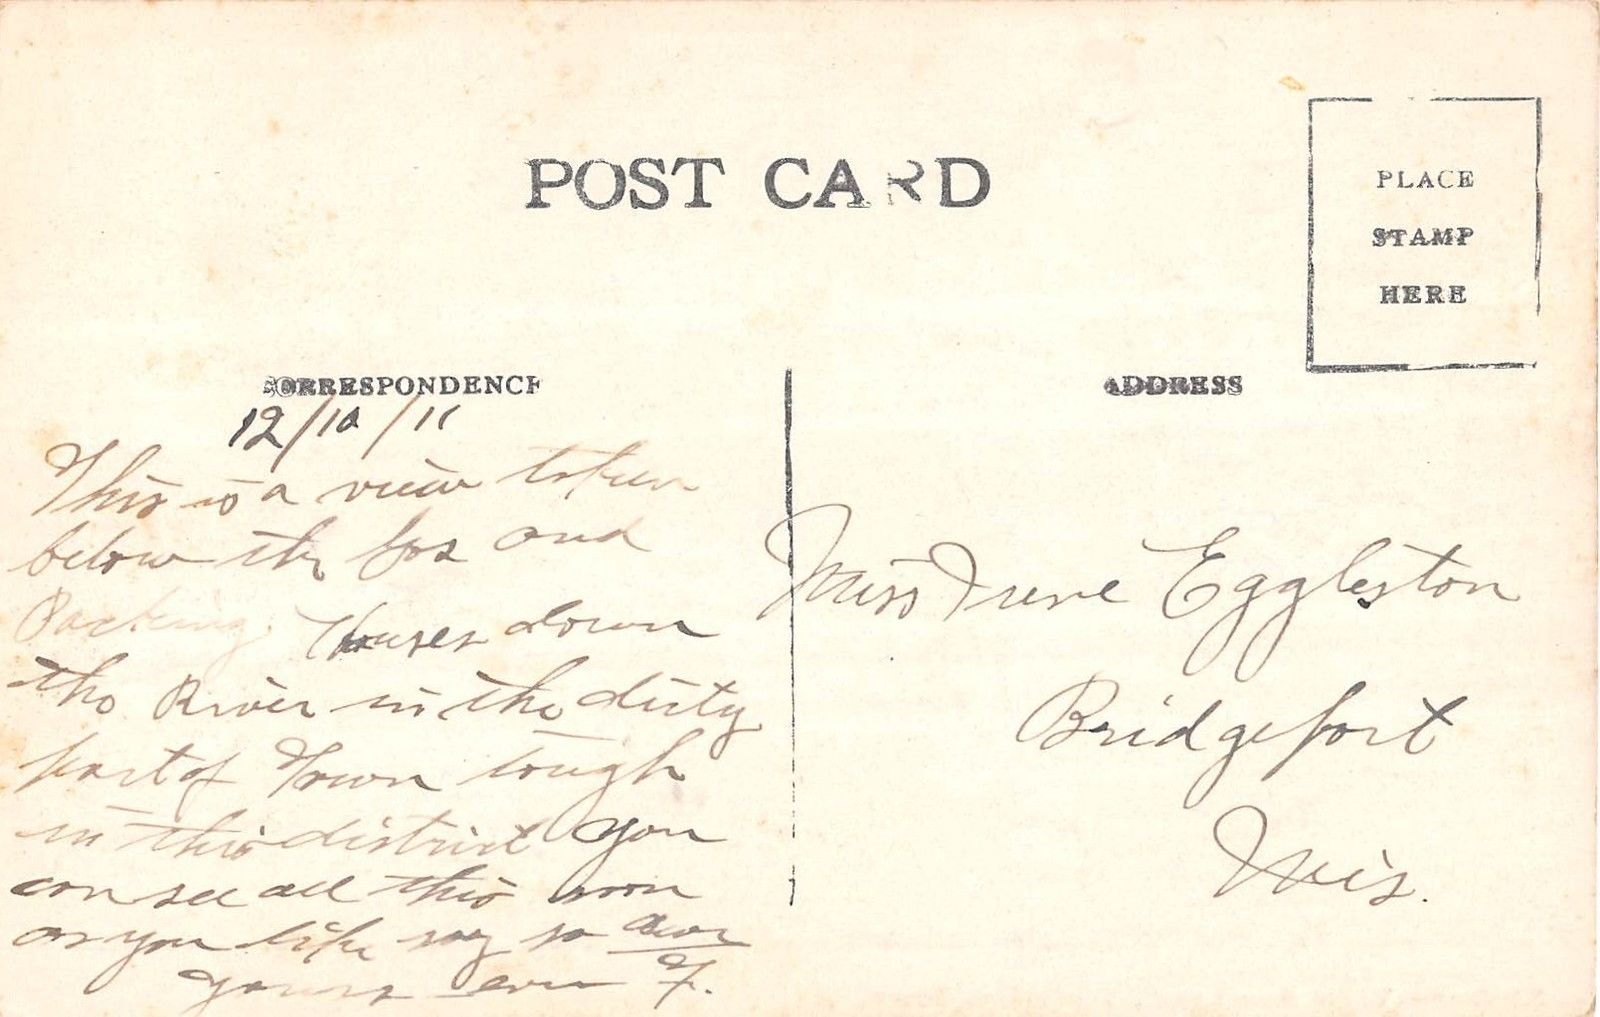 POST CARD
PLACE
STAMP
HERE
CORRESPONDENCE
ADDRESS
12/10/11
This is a view taken
below the and
Packing Houses down
the River in the dirty
part of Town tough
in this district you
can see all this soon
as you like say so dear
yours ever F.
Miss Irene Eggleston
Bridgeport
Wis.